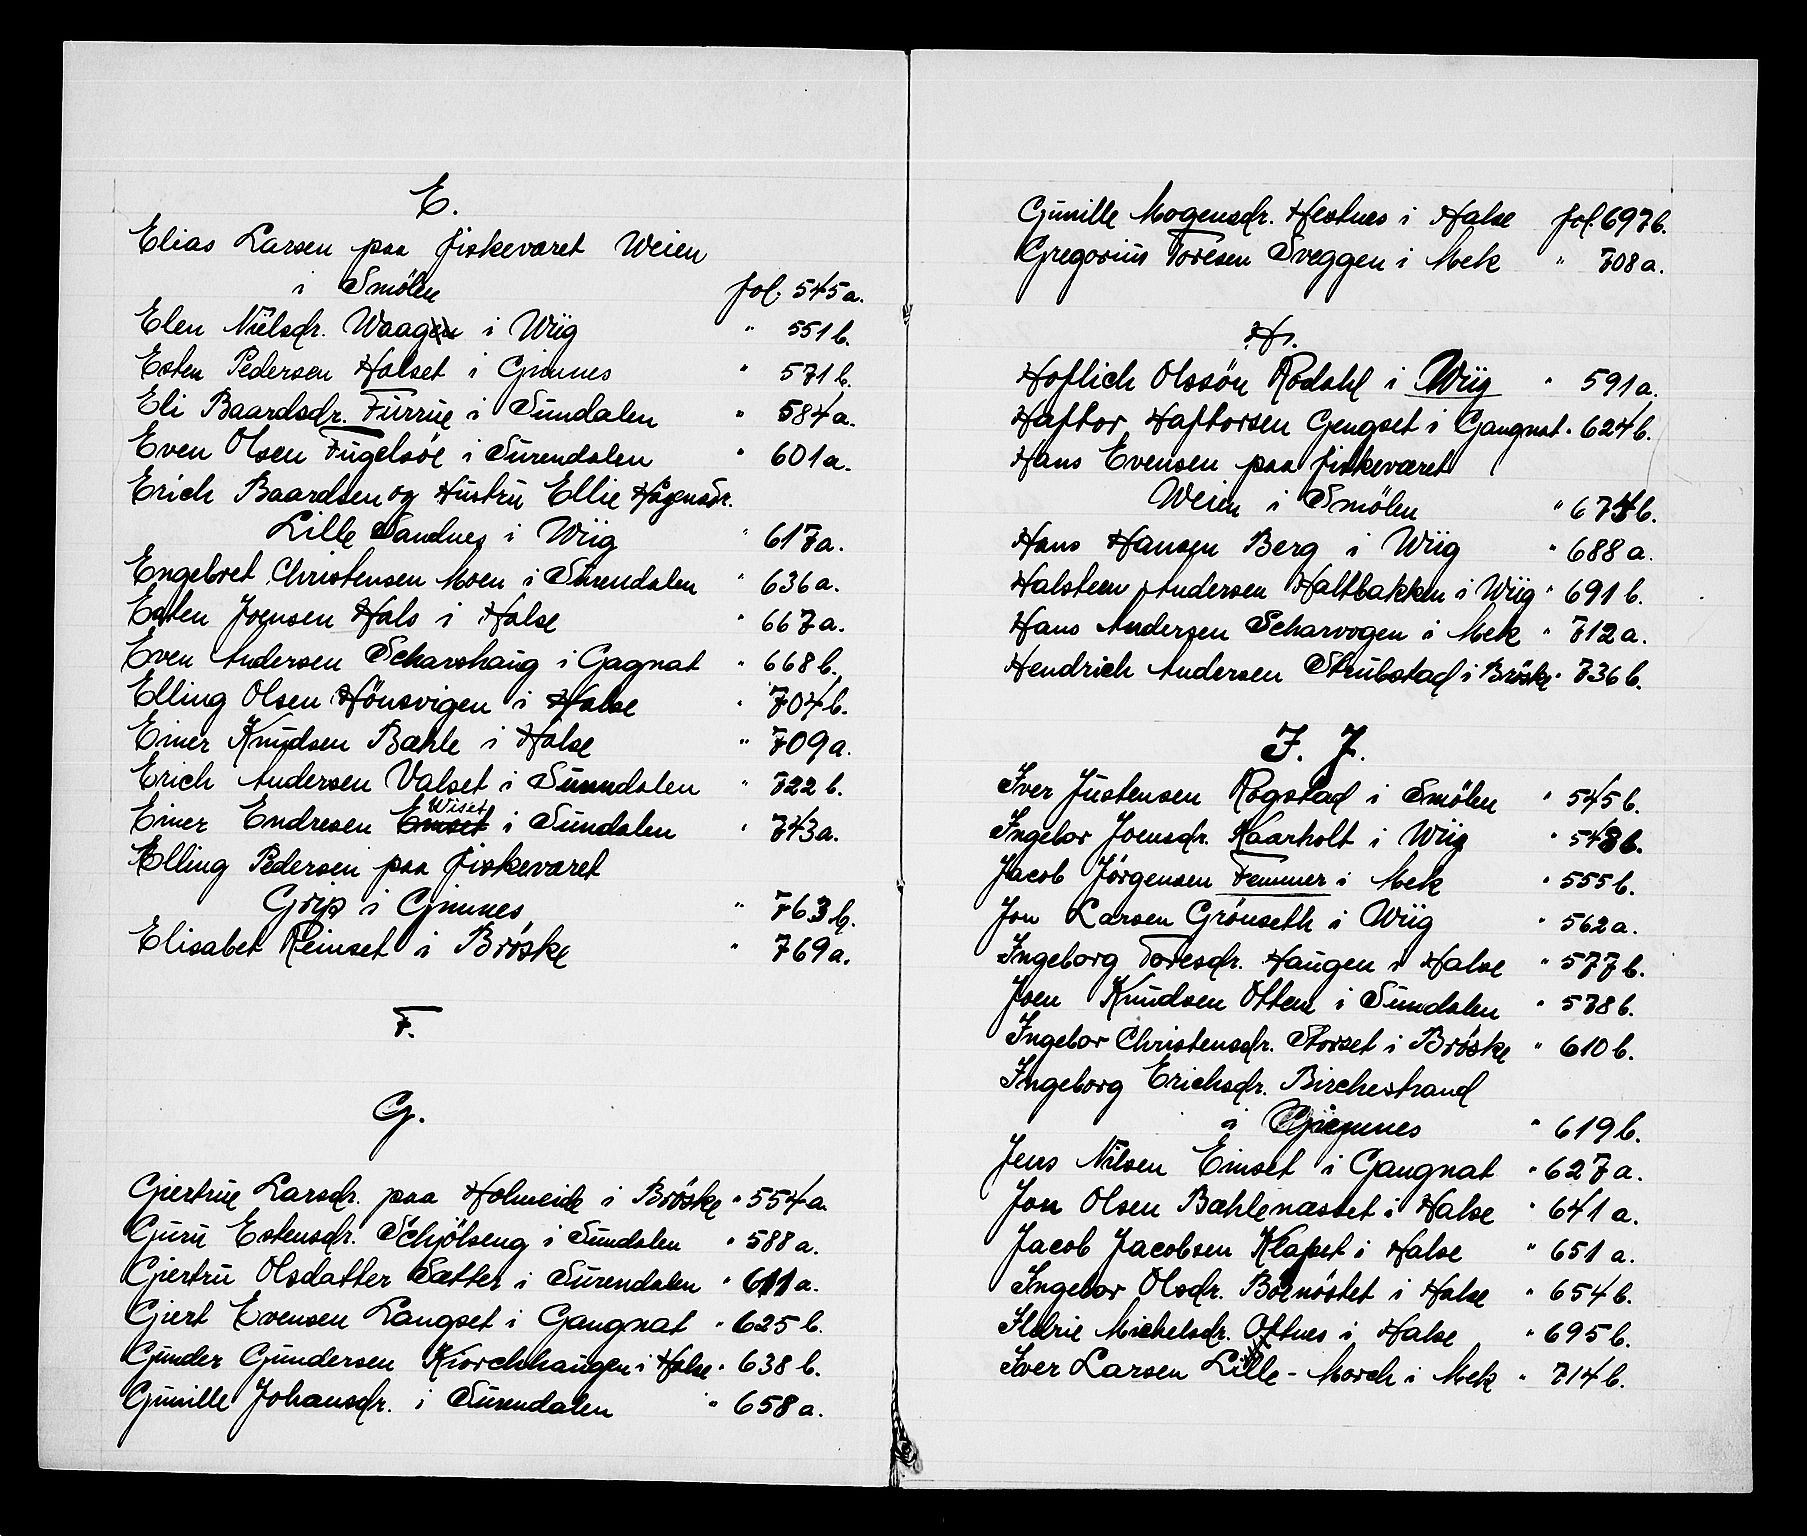 E.
Elias Larsen paa fiskeværet Weien
i Smölen fol. 545 a.
Elen Nielsdr. Waagen i Wiig " 551 b.
Esten Pedersen Halset i Gimnes " 571 b.
Eli Baardsdr. Furrue i Sundalen " 584 a.
Even Olsen Fugelsöe i Surendalen " 601 a.
Erich Baardsen og Hustru Ellie Hagensdr.
Lille Sandnes i Wiig " 617 a.
Engebret Christensen Moen i Surendalen " 636 a.
Esten Joensen Hals i Halse " 667 a.
Even Andersen Scharshaug i Gagnat " 668 b.
Elling Olsen Hönsvigen i Halse " 704 b.
Einer Knudsen Bæhle i Halse " 709 a.
Erich Andersen Valset i Sunndalen " 722 b.
Einer Endresen Einset Wiset i Sundalen " 743 a.
Elling Pedersen paa fiskeværet
Grip i Gimnes " 763 b.
Elisabet Reinset i Bröske " 769 a.
F.
G.
Giertrue Larsdr. paa Holmeide i Bröske " 554 a.
Guru Estensdr. Schjölseng i Sundalen " 588 a.
Giertru Olsdatter Sætter i Surendalen " 611 a.
Giert Evensen Langset i Gangnat " 625 b.
Gunder Gundersen Kiorchhaugen i Halse " 638 b.
Gunille Johansdr. i Surendalen " 658 a.
Gunille Mogensdr. Hestnes i Halse fol. 697 b.
Gregorius Toresen Sveggen i Mek " 708 a.
H.
Hoflich Olssön Rodahl i Wiig " 591 a.
Haftor Haftorsen Gengset i Gangnat " 624 b.
Hans Evensen paa fiskeværet
Weien i Smölen " 674 b.
Hans Hansen Berg i Wiig " 688 a.
Halsteen Andersen Haltbakken i Wiig " 691 b.
Hans Andersen Scharvogen i Mek " 712 a.
Hendrich Andersen Strubstad i Bröske " 736 b.
I. J.
Iver Justensen Rogstad i Smölen " 545 b.
Ingebor Joensdr. Kaarholt i Wiig " 548 b.
Jacob Jörgensen Femmer i Mek " 555 b.
Jon Larsen Grönseth i Wiig " 562 a.
Ingeborg Toresdr. Haugen i Halse " 577 b.
Joen Knudsen Ottem i Sundalen " 578 b.
Ingebor Christensdr. Storset i Bröske " 610 b.
Ingeborg Erichsdr. Birchestrand
i Gimnes " 619 b.
Jens Nilsen Einset i Gangnat " 627 a.
Jon Olsen Bæhlenæsset i Halse " 641 a.
Jacob Jacobsen Klapset i Halse " 651 a.
Ingebor Olsdr. Boenöstet i Halse " 654 b.
Ildrie Michelsdr. Ottnes i Halse " 695 b.
Iver Larsen Lille-Morch i Mek " 714 b.